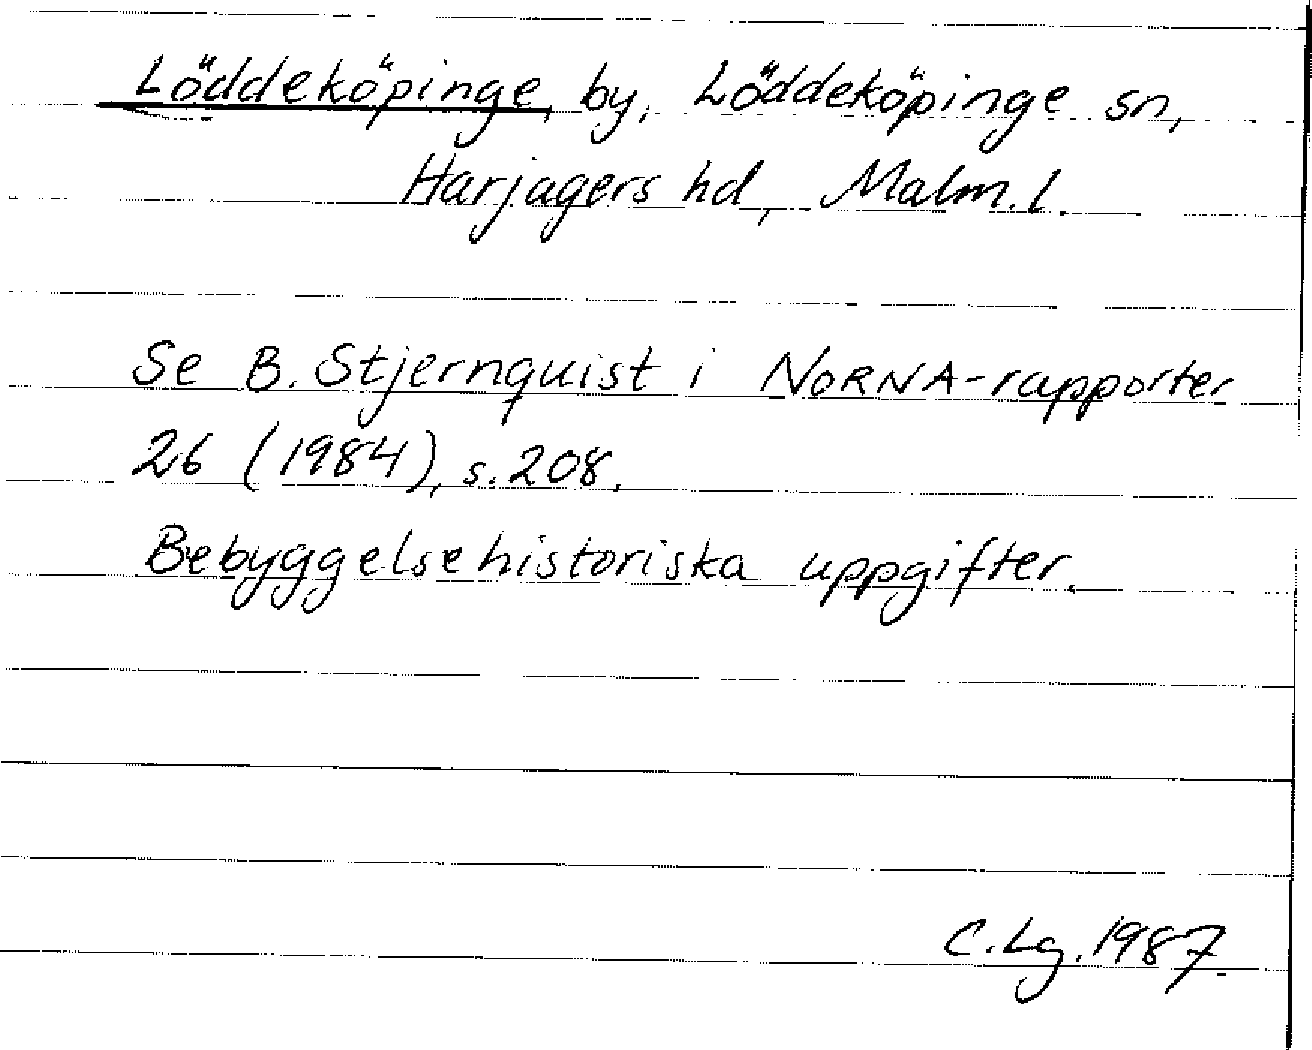 Löddeköpinge, by, Löddeköpinge sn,
Harjagers hd, Malm. l.
Se B. Stjernquist i NORNA-rapporter
26 (1984), s. 208.
Bebyggelsehistoriska uppgifter.
C. Lg. 1987.